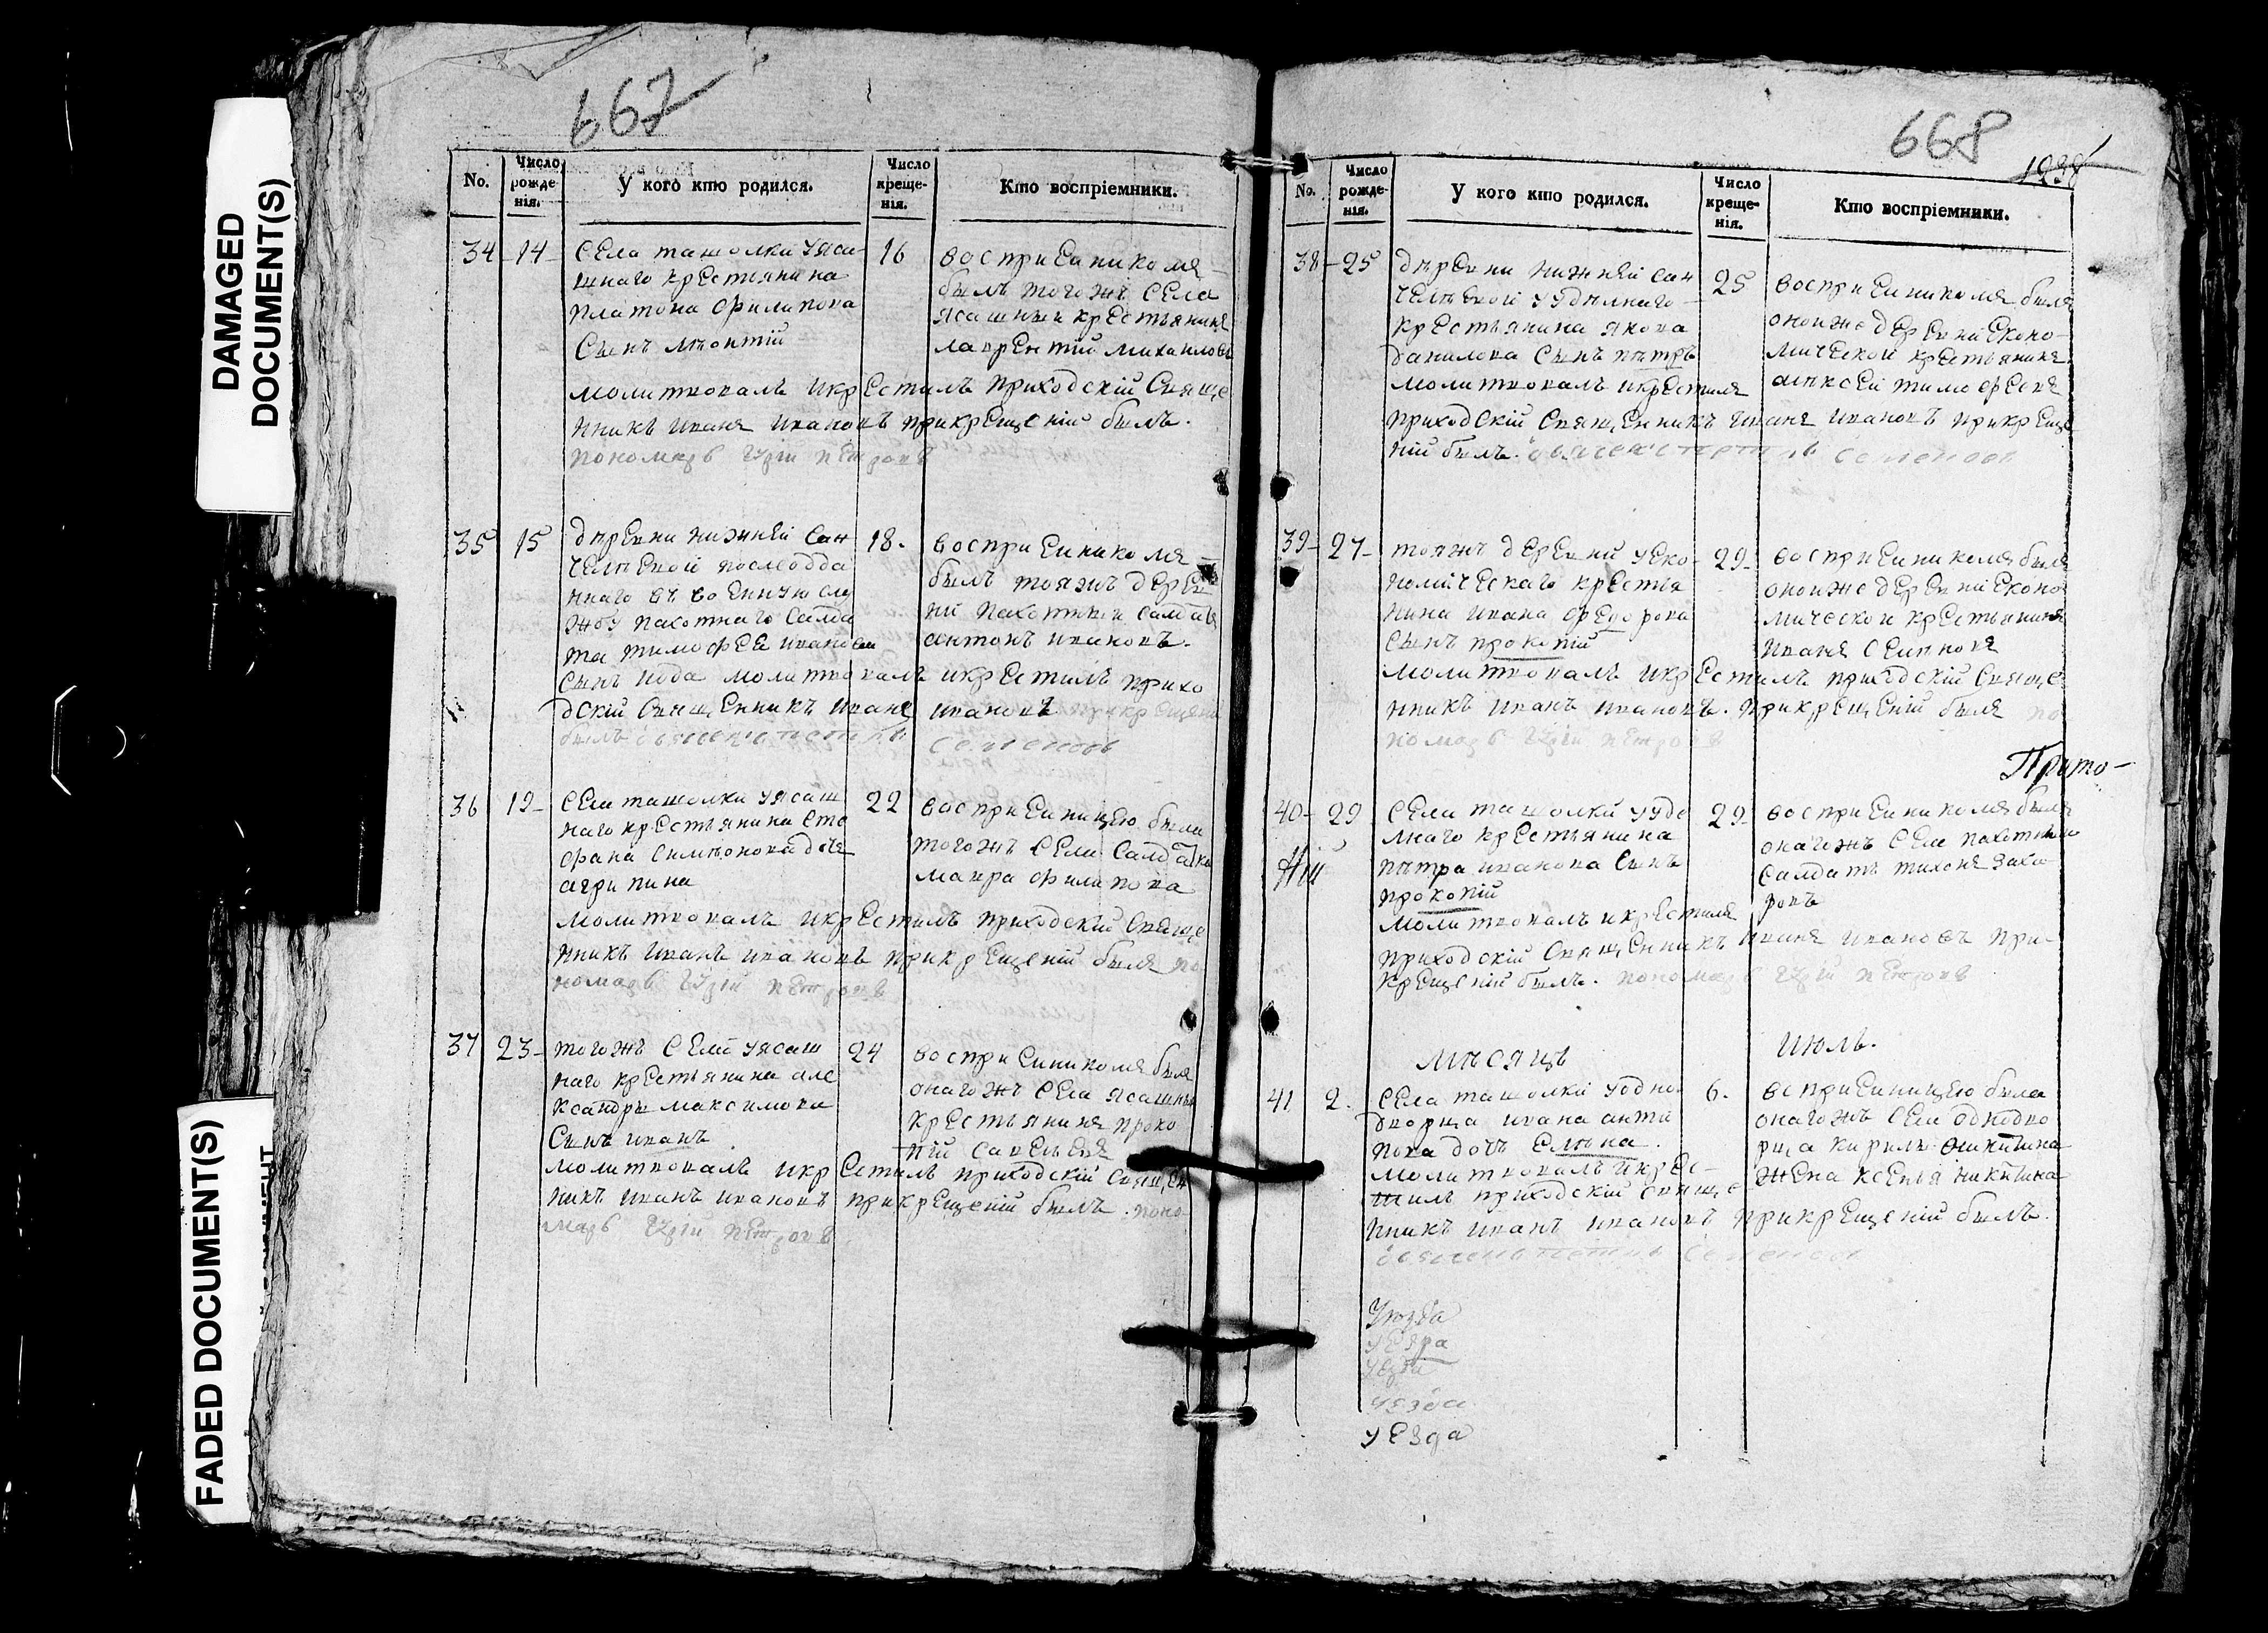 DAMAGED
DOCUMENT(S)
FADED DOCUMENT(S)
667
No.
Число рожденія.
У кого кто родился.
Число крещенія.
Кто воспріемники.
34 14 села ташолки уяса
шнаго крестьянина
платона филипова
сынъ леонтій
16 восприемникомъ
былъ тогожъ села
ясашный крестьянинъ
лаврентій михаиловъ
молитвовалъ икрестилъ приходскій свяще
нникъ иванъ ивановъ прикрещеній былъ.
пономарь гурій петровъ
35 15 деревни нижней сан
челеевой послеодда
ннаго въ военную слу
жбу пахотнаго салда
та тимофея иванова
18. восприемникомъ
былъ тояжъ дерев
ни пахотный салдатъ
антонъ ивановъ.
сынъ иода молитвовалъ икрестилъ прихо
дскій священникъ иванъ ивановъ прикрещени
былъ семеновъ
36 19 села ташолки уясаш
наго крестьянина сте
фана симеонова дочь
агрипина
22 восприемницею была
тогожъ села салдатка
мавра филипова
молитвовалъ икрестилъ приходскій свяще
нникъ иванъ ивановъ прикрещеній былъ по
номарь гурій петровъ
37 23 тогожъ села уясаш
наго крестьянина але
ксандры максимова
сынъ иванъ
24 восприемникомъ былъ
онагожъ села ясашный
крестьянинъ проко
пій савельевъ
молитвовалъ икрестилъ приходскій священ
никъ иванъ ивановъ прикрещеній былъ. поно
марь гурій петровъ
668
No.
Число рожденія.
У кого кто родился.
Число крещенія.
Кто воспріемники.
38 25 деревни нижней сан
челеевой уудѣлнаго
крестьянина якова
данилова сынъ петръ
25 восприемникомъ былъ
оноижедеревни еконо
мической крестьянинъ
алексей тимофеевъ
молитвовалъ икрестилъ
приходскій священникъ иванъ ивановъ прикреще
ній былъ. семеновъ
39 27 тояжъ деревни уеко
номическаго крестья
нина ивана федорова
сынъ прокопій
29 восприемникомъ былъ
оноиже деревни еконо
мической крестьянинъ
иванъ
молитвовалъ икрестилъ приходскій свяще
нникъ иванъ ивановъ. прикрещеній былъ по
номарь гурій петровъ
Прото-
40 29 села ташолки ууде
лнаго крестьянина
петра иванова сынъ
прокопій
29 восприемникомъ былъ
онагожъ села пахотный
салдатъ тихонъ заха
ровъ
молитвовалъ икрестилъ
приходскій священникъ иванъ ивановъ при-
крещеній былъ. пономарь гурій петровъ
мѣсяцъ июль.
41 2. села ташолки уодно
дворца ивана анти
пова дочь елена.
6. восприемницею была
онагожъ села однодво
рца кирилы никитина
жена ксенья никитина
молитвовалъ икрес-
тилъ приходскій свяще
нникъ иванъ ивановъ прикрещеній былъ.
семеновъ
уезда
уезда